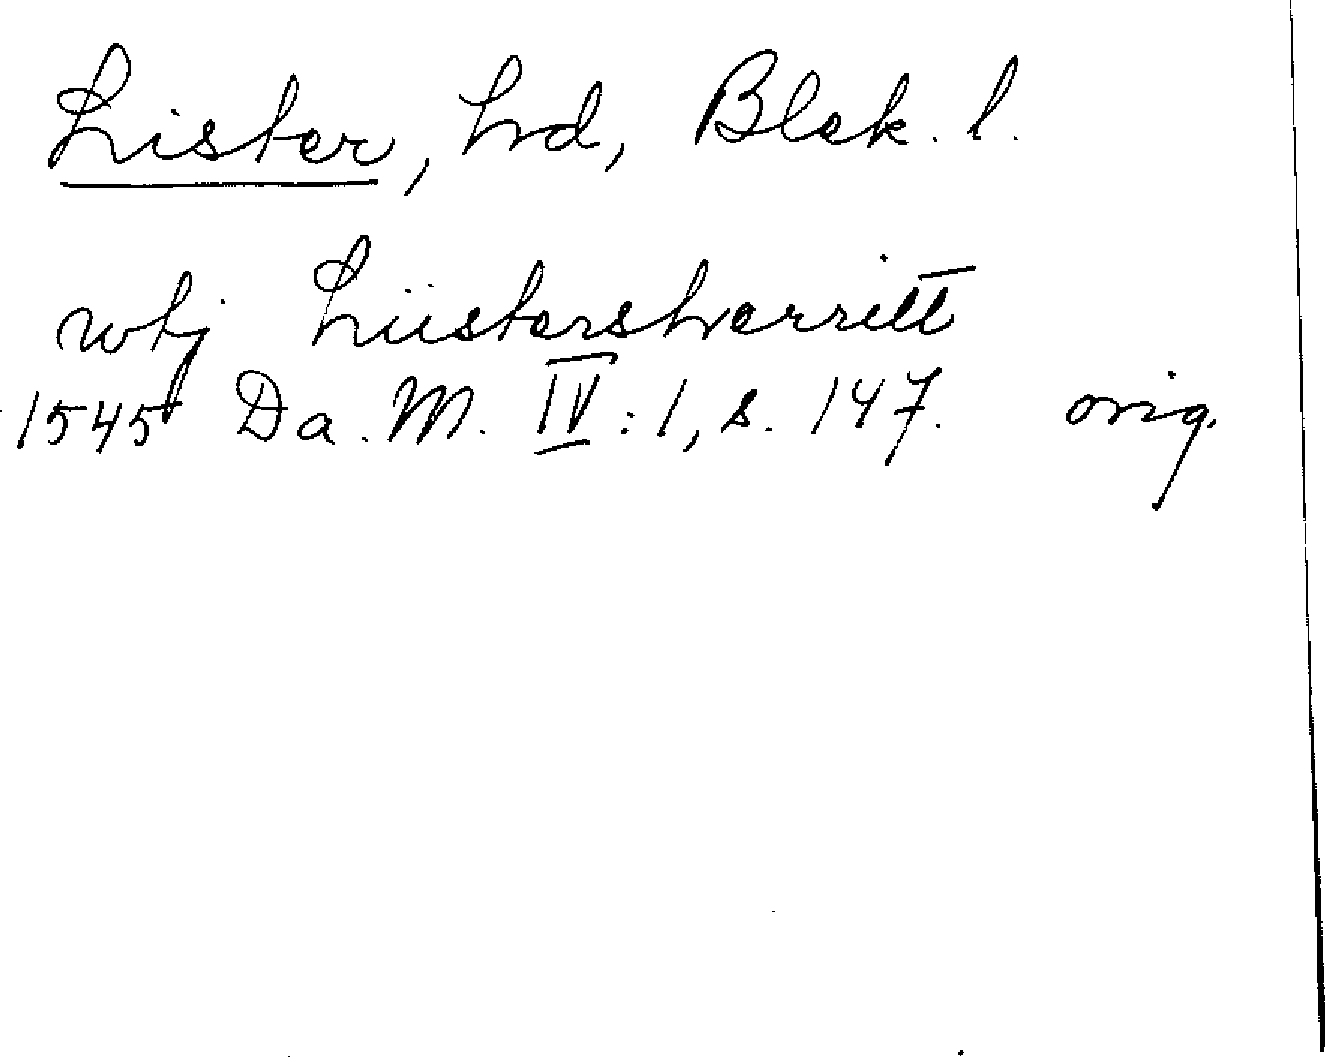 Lister, hrd, Blek. l.
vtj Liistersherritt
1545 Da. M. IV:1, s. 147. orig.